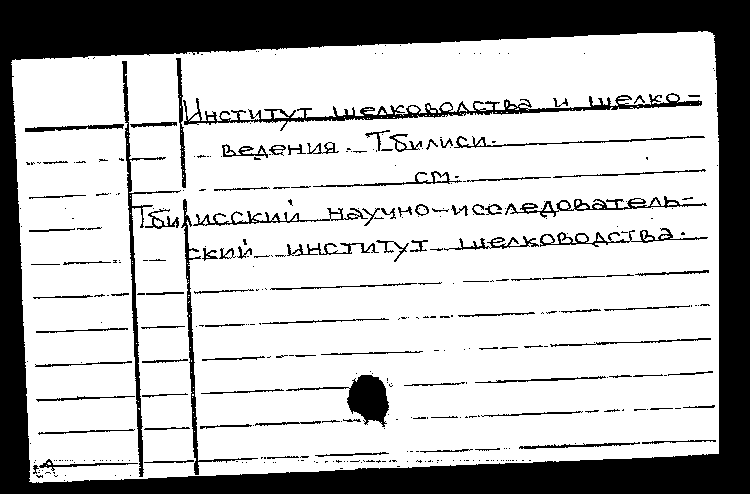 Институт шелководства и шелко-
ведения. Тбилиси.
см.
Тбилисский научно-исследователь-
ский институт шелководства.